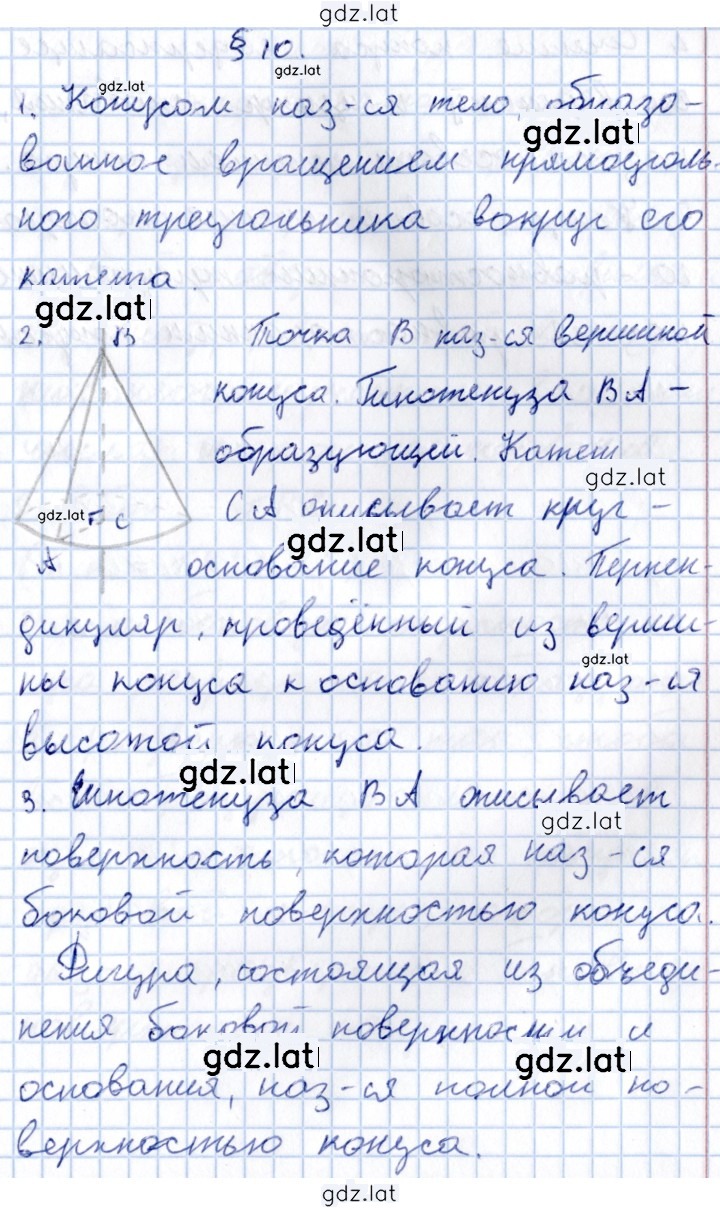 gdz.lat
§ 10.
gdz.lat
1. Конусом наз-ся тело, образо-
gdz.lat
ванное вращением прямоуголь-
ного треугольника вокруг его
катета.
gdz.lat
2. В Точка В наз-ся вершиной
конуса. Гипотенуза ВА -
образующей. Катет
gdz.lat
gdz.lat С СА описывает круг -
gdz.lat
А основание конуса. Перпен-
дикуляр, проведённый из верши-
gdz.lat
ны конуса к основанию наз-ся
высотой конуса.
gdz.lat
3. Гипотенуза ВА описывает
gdz.lat
поверхность, которая наз-ся
боковой поверхностью конуса.
Фигура, состоящая из объеди-
нения боковой поверхности и
gdz.lat gdz.lat
основания, наз-ся полной по-
верхностью конуса.
gdz.lat